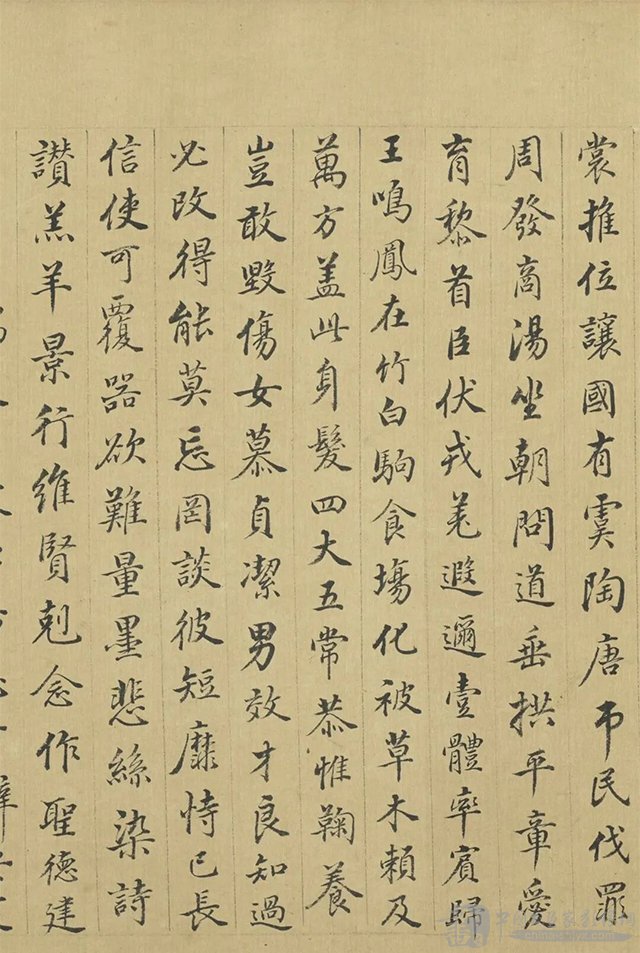 裳推位讓國有虞陶唐吊民伐罪
周發商湯坐朝問道垂拱平章愛
育黎首臣伏戎羌遐邇壹體率賓歸
王鳴鳳在竹白駒食場化被草木賴及
萬方盖此身髮四大五常恭惟鞠養
豈敢毀傷女慕貞潔男效才良知過
必改得能莫忘罔談彼短靡恃己長
信使可覆器欲難量墨悲絲染詩
讚羔羊景行維賢剋念作聖德建